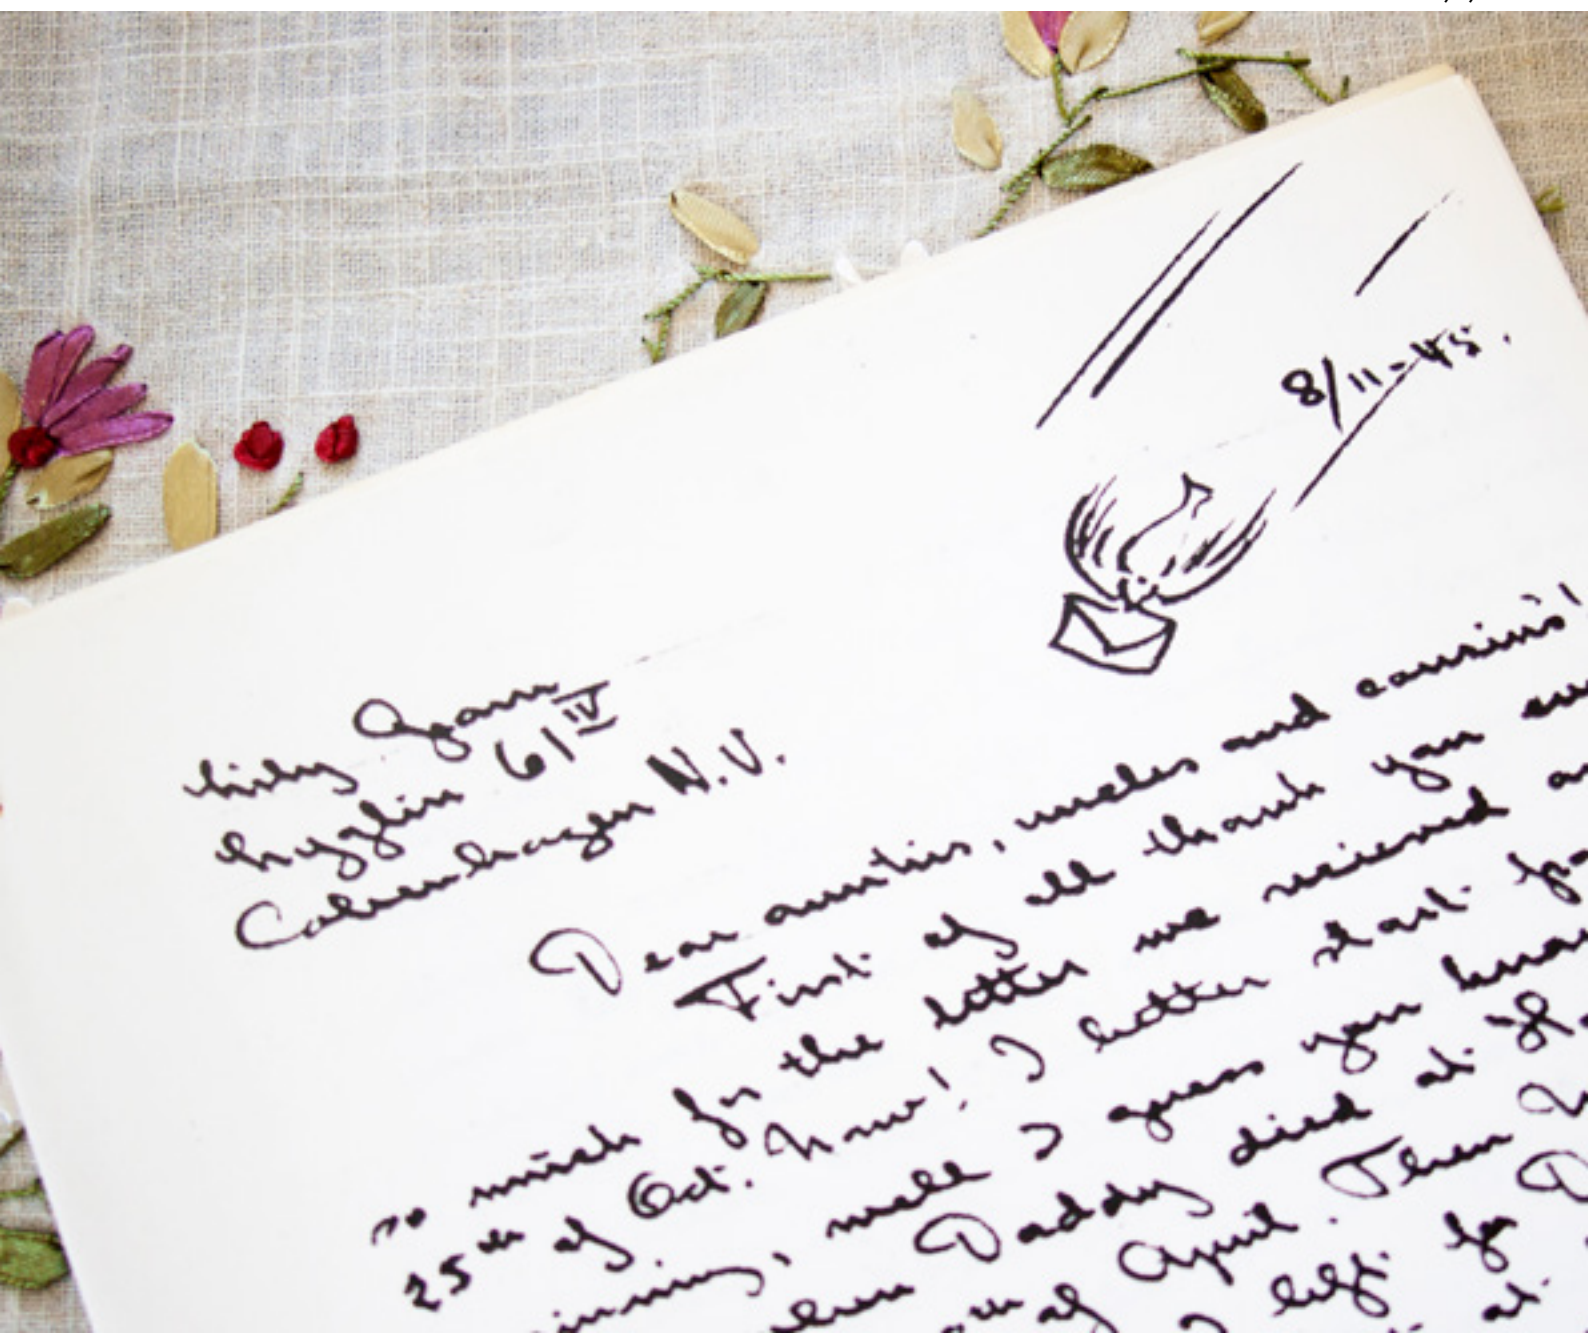 8/11-45.
61 IV
Copenhagen N.V.
Dear aunties, uncles and cousins!
First of all thank you
so much for the letter we recieved
25th of Oct. Now! I better start
well I guess you know
when Daddy died at
of April. Then
I left for
at